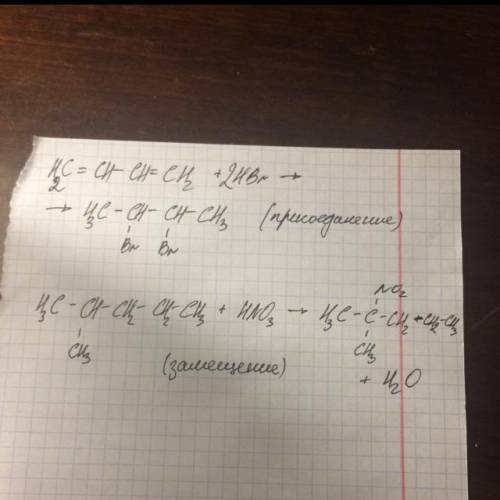 H₂C = CH - CH = CH₂ + 2HBr →
→ H₃C - CH - CH - CH₃ (присоединение)
Br Br
NO₂
H₃C - CH - CH₂ - CH₂ - CH₃ + HNO₃ → H₃C - C - CH₂ + CH₂ - CH₃
CH₃ CH₃
(замещение) + H₂O